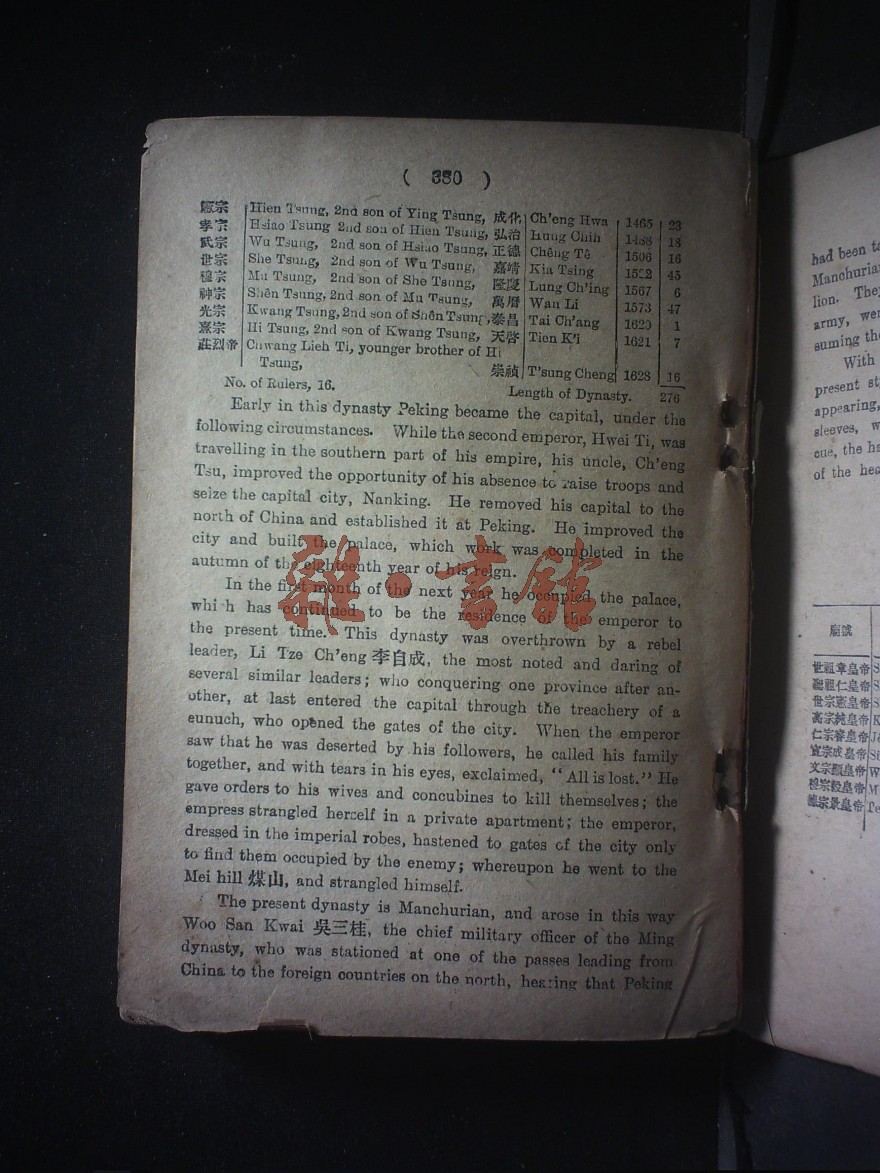 ( 380 )
憲宗 Hien Tsung, 2nd son of Ying Tsung, 成化 Ch'eng Hwa 1465 23
孝宗 Hsiao Tsung 2nd son of Hien Tsung, 弘治 Hung Chih 1488 18
武宗 Wu Tsung, 2nd son of Hsiao Tsung, 正德 Chêng Tê 1506 16
世宗 She Tsung, 2nd son of Wu Tsung, 嘉靖 Kia Tsing 1522 45
穆宗 Mu Tsung, 2nd son of She Tsung, 隆慶 Lung Ch'ing 1567 6
神宗 Shên Tsung, 2nd son of Mu Tsung, 萬曆 Wan Li 1573 47
光宗 Kwang Tsung, 2nd son of Shên Tsung, 泰昌 Tai Ch'ang 1620 1
熹宗 Hi Tsung, 2nd son of Kwang Tsung, 天啓 Tien K'i 1621 7
莊烈帝 Chwang Lieh Ti, younger brother of Hi
Tsung, 崇禎 T'sung Cheng 1628 16
No. of Rulers, 16. Length of Dynasty. 276
Early in this dynasty Peking became the capital, under the
following circumstances. While the second emperor, Hwei Ti, was
travelling in the southern part of his empire, his uncle, Ch'eng
Tsu, improved the opportunity of his absence to raise troops and
seize the capital city, Nanking. He removed his capital to the
north of China and established it at Peking. He improved the
city and built the palace, which work was completed in the
autumn of the eighteenth year of his reign.
In the first month of the next year he occupied the palace,
whi h has continued to be the residence of the emperor to
the present time. This dynasty was overthrown by a rebel
leader, Li Tze Ch'eng 李自成, the most noted and daring of
several similar leaders; who conquering one province after an-
other, at last entered the capital through the treachery of a
eunuch, who opened the gates of the city. When the emperor
saw that he was deserted by his followers, he called his family
together, and with tears in his eyes, exclaimed, "All is lost." He
gave orders to his wives and concubines to kill themselves; the
empress strangled herself in a private apartment; the emperor,
dressed in the imperial robes, hastened to gates of the city only
to find them occupied by the enemy; whereupon he went to the
Mei hill 煤山, and strangled himself.
The present dynasty is Manchurian, and arose in this way
Woo San Kwai 吳三桂, the chief military officer of the Ming
dynasty, who was stationed at one of the passes leading from
China to the foreign countries on the north, hearing that Peking
雜·書館
had been
Manchuria
lion. The
army, wer
suming the
With
present st
appearing,
sleeves, w
cue, the
of the hea
廟號
世祖章皇帝 S
聖祖仁皇帝 S
世宗憲皇帝 S
高宗純皇帝 K
仁宗睿皇帝
宣宗成皇帝
文宗顯皇帝 W
穆宗毅皇帝 M
德宗景皇帝